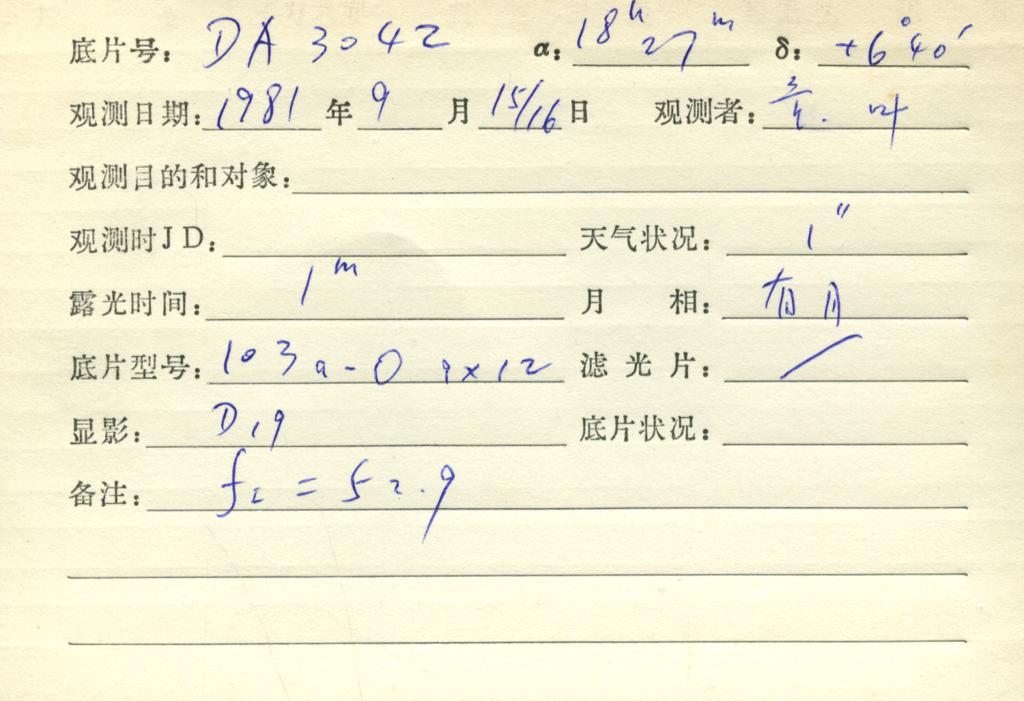 底片号: DA 3042 α: 18h 27m δ: +6°40′
观测日期: 1981 年 9 月 15/16 日 观测者: 叶
观测目的和对象:
观测时JD: 天气状况: 1″
露光时间: 1m 月相: 有月
底片型号: 103a-O 9×12 滤光片: /
显影: D19 底片状况:
备注: = 52.9